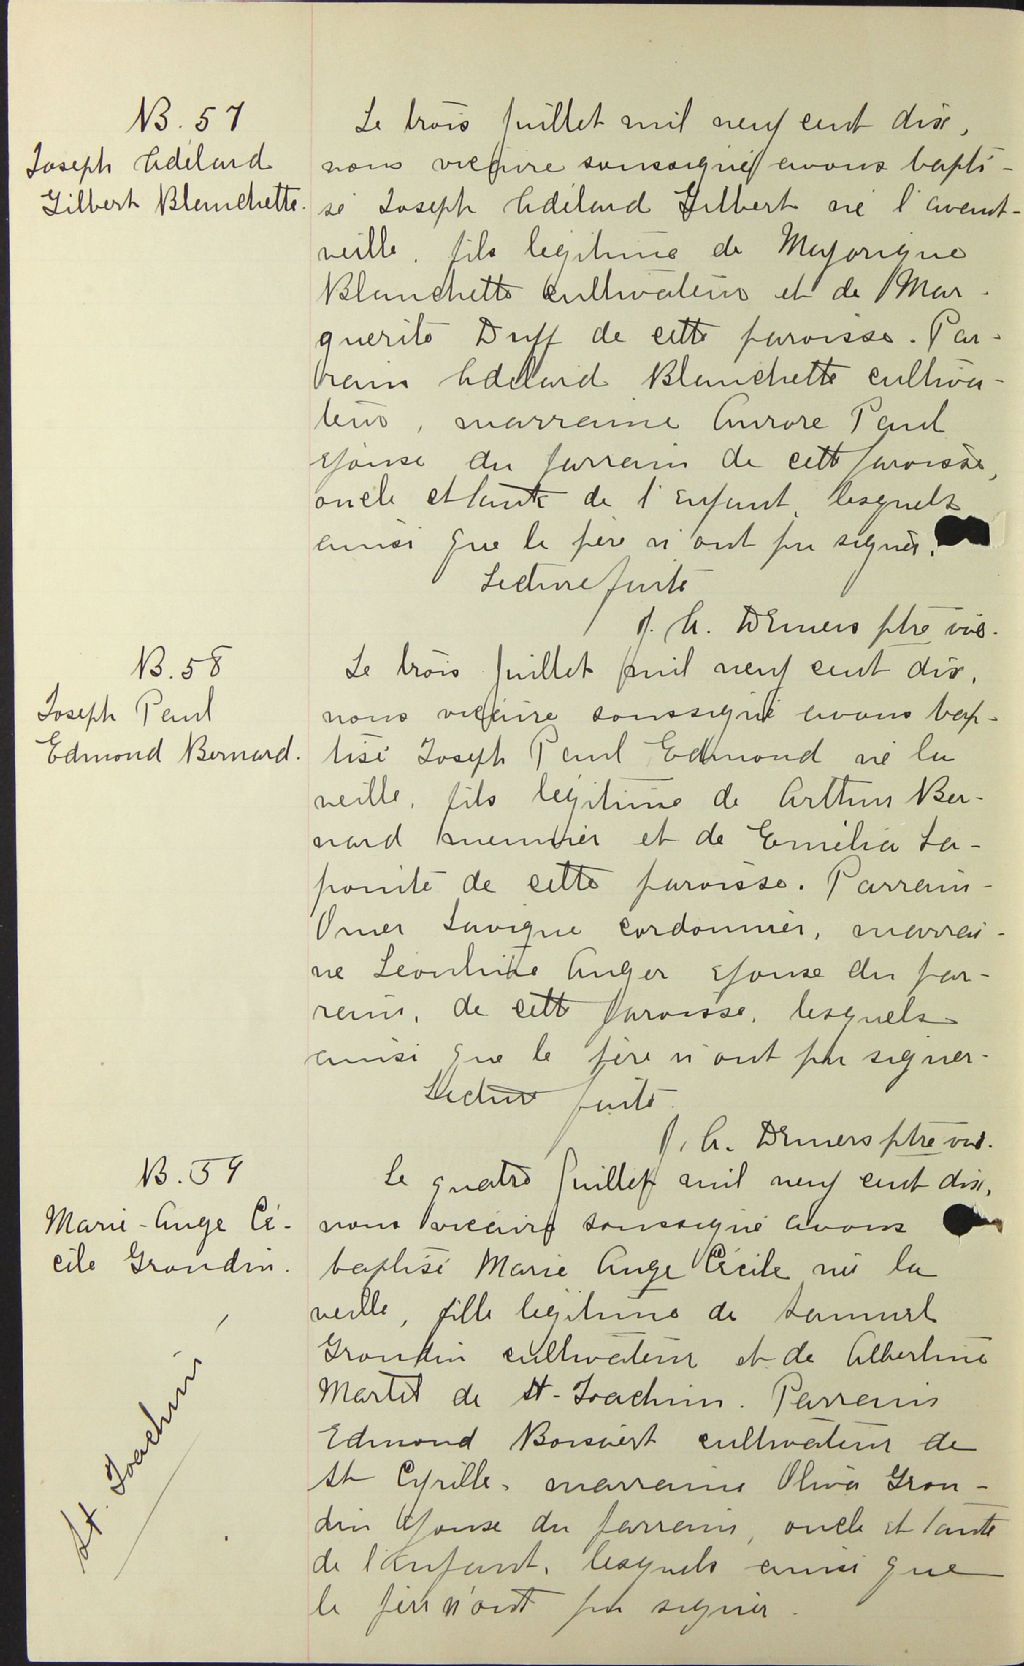 B. 57
Joseph Adélard
Gilbert Blanchette.
Le trois Juillet mil neuf cent dix,
nous vicaire soussigné avons bapti-
sé Joseph Adélard Gilbert né l'avant-
veille, fils légitime de Majorique
Blanchette cultivateur et de Mar-
guerite Duff de cette paroisse. Par-
rain Adélard Blanchette cultiva-
teur, marraine Aurore Paul
épouse du parrain de cette paroisse,
oncle et tante de l'enfant, lesquels
ainsi que le père n'ont pu signer.
Lecture faite
J. A. Demers ptre vic.
B. 58
Joseph Paul
Edmond Bernard.
Le trois Juillet mil neuf cent dix,
nous vicaire soussigné avons bap-
tisé Joseph Paul Edmond né la
veille, fils légitime de Arthur Ber-
nard meunier et de Emélia La-
pointe de cette paroisse. Parrain
Omer Lavigne cordonnier, marrai-
ne Léontine Anger épouse du par-
rain, de cette paroisse, lesquels
ainsi que le père n'ont pu signer.
Lecture faite
J. A. Demers ptre vic.
B. 59
Marie-Ange Cé-
cile Grondin.
St. Joachim
Le quatre Juillet mil neuf cent dix,
nous vicaire soussigné avons
baptisé Marie Ange Cécile née la
veille, fille légitime de Samuel
Grondin cultivateur et de Albertine
Martel de St-Joachim. Parrain
Edmond Boisvert cultivateur de
St Cyrille, marraine Oliva Gron-
din épouse du parrain, oncle et tante
de l'enfant, lesquels ainsi que
le père n'ont pu signer.